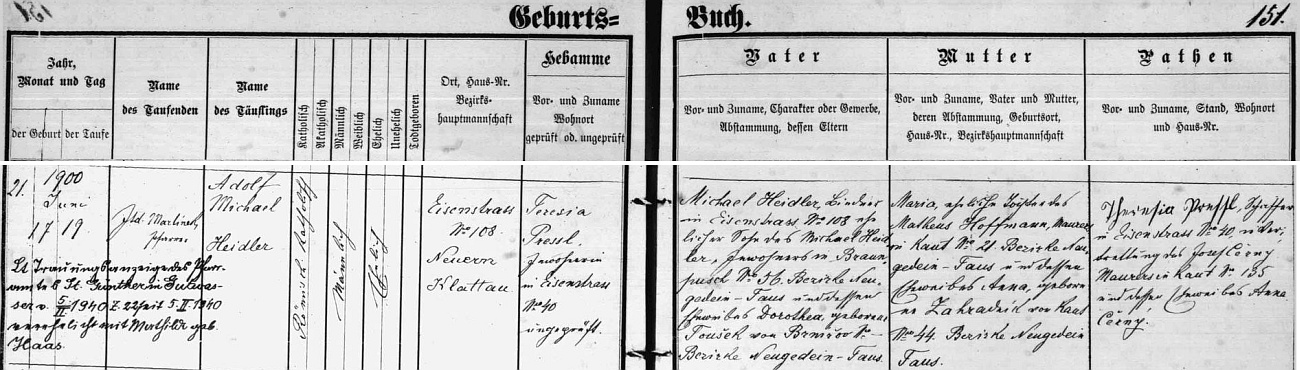 Geburts=
Buch.
151.
Jahr,
Monat und Tag
der Geburt
der Taufe
Name
des Taufenden
Name
des Täuflings
Katholisch
Akatholisch
Männlich
Weiblich
Ehelich
Unehelich
Todtgeboren
Ort, Haus-Nr.
Bezirks-
hauptmannschaft
Hebamme
Vor- und Zuname
Wohnort
geprüft od. ungeprüft
Vater
Vor- und Zuname, Charakter oder Gewerbe,
Abstammung, dessen Eltern
Mutter
Vor- und Zuname, Vater und Mutter,
deren Abstammung, Geburtsort,
Haus-Nr., Bezirkshauptmannschaft
Pathen
Vor- und Zuname, Stand, Wohnort
und Haus-Nr.
21.
1900
Juni
17 19
Lt. Trauungsanzeige des Pfarr-
amtes St. Günther in Gutwas-
ser v. 5/II 1940 Z. 22 seit 5. II. 1940
verehelicht mit Mathilde geb.
Haas.
Pfarrer
Adolf
Michael
Heidler
Römisch Katholisch
Männlich
Ehelich
Eisenstrass
No 108.
Neuern
Klattau
Teresia
Pressl.
Inwohnerin
in Eisenstrass
No 40
ungeprüft.
Michael Heidler, Bindner
in Eisenstrass No 108 ehe
licher Sohn des Michael Heid
ler, Inwohners in Braun
pusch No 56. Bezirke Neu-
gedein - Taus und dessen
Eheweibes Dorothea, geborene
Toušek von No -
Bezirke Neugedein - Taus.
Maria, eheliche Tochter des
Matheus Hoffmann, Maurers
in Kaut No 21. Bezirke Neu-
gedein - Taus und dessen
Eheweibes Anna, gebore
ne Zahradník von Kaut
No 44. Bezirke Neugedein
Taus.
Theresia Pressl,
in Eisenstrass No 40 in Ver-
tretung des Josef Černy
Maurers in Kaut No 135
und dessen Eheweibes Anna
Černy.